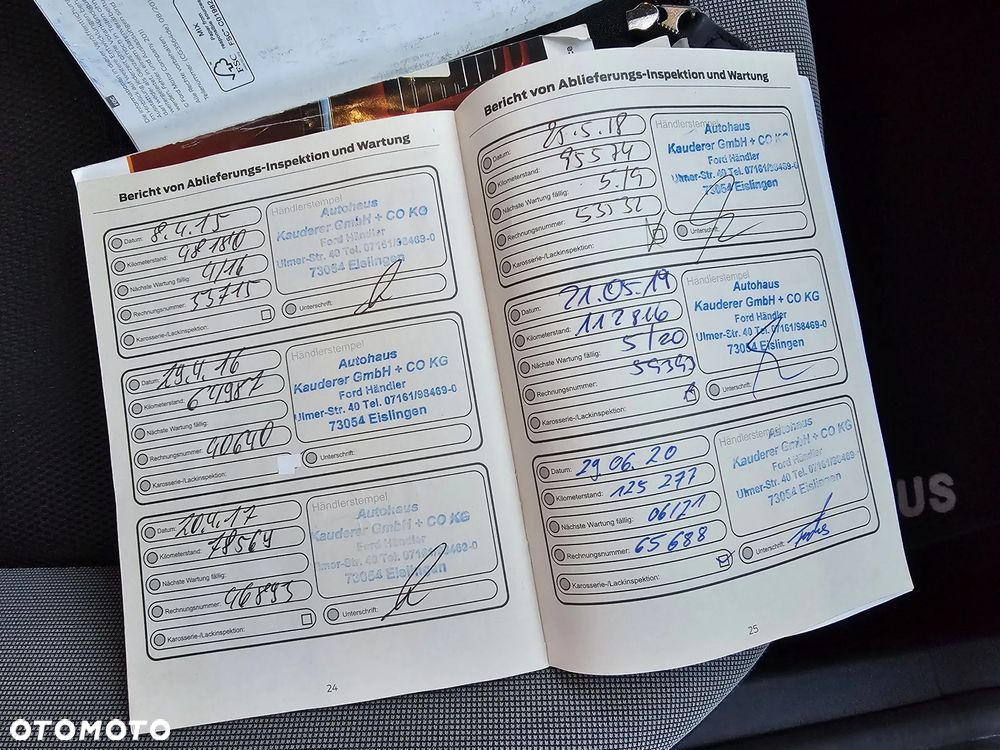 MIX
FSC
Bericht von Ablieferungs-Inspektion und Wartung
Datum: 8.4.15
Kilometerstand: 481810
Nächste Wartung fällig: 4/16
Rechnungsnummer: 33715
Karosserie-/Lackinspektion:
Händlerstempel
Autohaus
Kauderer GmbH + CO KG
Ford Händler
Ulmer-Str. 40 Tel. 07161/98469-0
73054 Eislingen
Unterschrift:
Datum: 19.4.16
Kilometerstand: 64987
Nächste Wartung fällig:
Rechnungsnummer: 40640
Karosserie-/Lackinspektion:
Händlerstempel
Autohaus
Kauderer GmbH + CO KG
Ford Händler
Ulmer-Str. 40 Tel. 07161/98469-0
73054 Eislingen
Unterschrift:
Datum: 20.4.17
Kilometerstand: 78569
Nächste Wartung fällig:
Rechnungsnummer: 46893
Karosserie-/Lackinspektion:
Händlerstempel
Autohaus
Kauderer GmbH + CO KG
Ford Händler
Ulmer-Str. 40 Tel. 07161/98469-0
73054 Eislingen
Unterschrift:
24
Bericht von Ablieferungs-Inspektion und Wartung
Datum: 25.5.18
Kilometerstand: 95574
Nächste Wartung fällig: 5.19
Rechnungsnummer: 53532
Karosserie-/Lackinspektion:
Händlerstempel
Autohaus
Kauderer GmbH + CO KG
Ford Händler
Ulmer-Str. 40 Tel. 07161/98469-0
73054 Eislingen
Unterschrift:
Datum: 21.05.19
Kilometerstand: 112816
Nächste Wartung fällig: 5/20
Rechnungsnummer: 59393
Karosserie-/Lackinspektion:
Händlerstempel
Autohaus
Kauderer GmbH + CO KG
Ford Händler
Ulmer-Str. 40 Tel. 07161/98469-0
73054 Eislingen
Unterschrift:
Datum: 29.06.20
Kilometerstand: 125 277
Nächste Wartung fällig: 06/21
Rechnungsnummer: 65688
Karosserie-/Lackinspektion:
Händlerstempel
Autohaus
Kauderer GmbH + CO KG
Ford Händler
Ulmer-Str. 40 Tel. 07161/98469-
73054 Eislingen
Unterschrift:
25
US
OTOMOTO